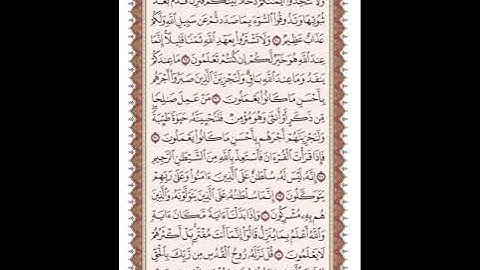 وَلَا تَتَّخِذُوٓا۟ أَيْمَٰنَكُمْ دَخَلًۢا بَيْنَكُمْ فَتَزِلَّ قَدَمٌۢ بَعْدَ
ثُبُوتِهَا وَتَذُوقُوا۟ ٱلسُّوٓءَ بِمَا صَدَدتُّمْ عَن سَبِيلِ ٱللَّهِ وَلَكُمْ
عَذَابٌ عَظِيمٌ ۝ وَلَا تَشْتَرُوا۟ بِعَهْدِ ٱللَّهِ ثَمَنًا قَلِيلًا إِنَّمَا
عِندَ ٱللَّهِ هُوَ خَيْرٌ لَّكُمْ إِن كُنتُمْ تَعْلَمُونَ ۝ مَا عِندَكُمْ
يَنفَدُ وَمَا عِندَ ٱللَّهِ بَاقٍ وَلَنَجْزِيَنَّ ٱلَّذِينَ صَبَرُوٓا۟ أَجْرَهُم
بِأَحْسَنِ مَا كَانُوا۟ يَعْمَلُونَ ۝ مَنْ عَمِلَ صَٰلِحًا
مِّن ذَكَرٍ أَوْ أُنثَىٰ وَهُوَ مُؤْمِنٌ فَلَنُحْيِيَنَّهُۥ حَيَوٰةً طَيِّبَةً
وَلَنَجْزِيَنَّهُمْ أَجْرَهُم بِأَحْسَنِ مَا كَانُوا۟ يَعْمَلُونَ ۝
فَإِذَا قَرَأْتَ ٱلْقُرْءَانَ فَٱسْتَعِذْ بِٱللَّهِ مِنَ ٱلشَّيْطَٰنِ ٱلرَّجِيمِ
۝ إِنَّهُۥ لَيْسَ لَهُۥ سُلْطَٰنٌ عَلَى ٱلَّذِينَ ءَامَنُوا۟ وَعَلَىٰ رَبِّهِمْ
يَتَوَكَّلُونَ ۝ إِنَّمَا سُلْطَٰنُهُۥ عَلَى ٱلَّذِينَ يَتَوَلَّوْنَهُۥ وَٱلَّذِينَ
هُم بِهِۦ مُشْرِكُونَ ۝ وَإِذَا بَدَّلْنَآ ءَايَةً مَّكَانَ ءَايَةٍ
وَٱللَّهُ أَعْلَمُ بِمَا يُنَزِّلُ قَالُوٓا۟ إِنَّمَآ أَنتَ مُفْتَرٍۭ بَلْ أَكْثَرُهُمْ
لَا يَعْلَمُونَ ۝ قُلْ نَزَّلَهُۥ رُوحُ ٱلْقُدُسِ مِن رَّبِّكَ بِٱلْحَقِّ